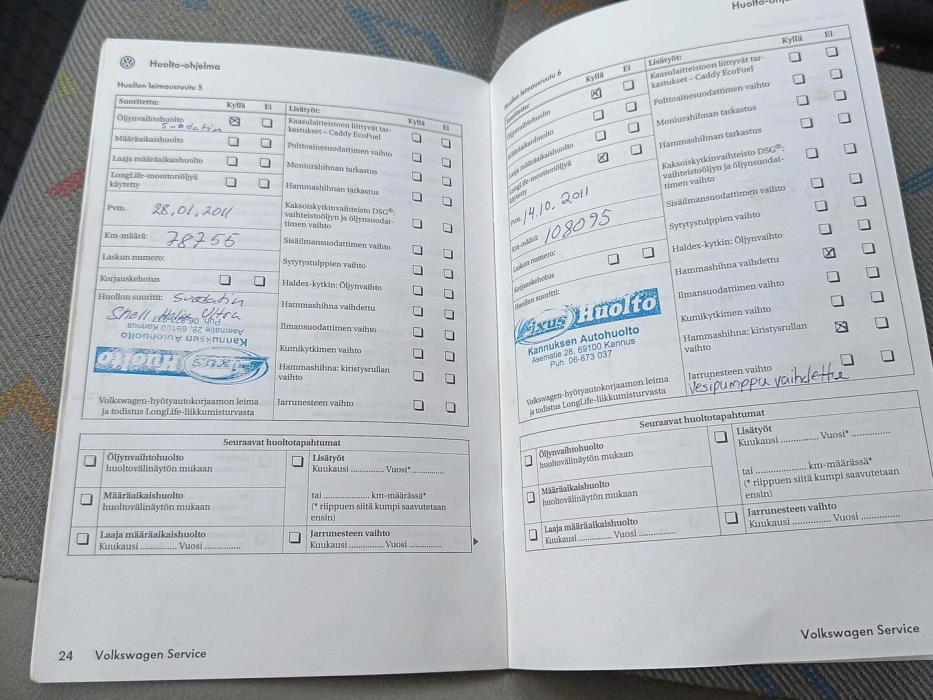 Huolto-ohjelma
Huollon leimausruutu 5
Suoritettu:
Kyllä
Ei
Öljynvaihtohuolto
Suodatin
Määräaikaishuolto
Laaja määräaikaishuolto
LongLife-moottoriöljyä
käytetty
Pvm.
28.01.2011
Km-määrä:
78755
Laskun numero:
Korjauskehotus
Huollon suoritti:
Suodatin
Shell Helix Ultra
Puh. 06-873 037
Asematie 28, 69100 Kannus
Kannuksen Autohuolto
Fixus Huolto
Volkswagen-hyötyautokorjaamon leima
ja todistus LongLife-liikkumisturvasta
Lisätyöt:
Kyllä
Ei
Kaasulaitteistoon liittyvät tar-
kastukset – Caddy EcoFuel
Polttoainesuodattimen vaihto
Moniurahihnan tarkastus
Hammashihnan tarkastus
Kaksoiskytkinvaihteisto DSG®:
vaihteistoöljyn ja öljynsuodat-
timen vaihto
Sisäilmansuodattimen vaihto
Sytytystulppien vaihto
Haldex-kytkin: Öljynvaihto
Hammashihna vaihdettu
Ilmansuodattimen vaihto
Kumikytkimen vaihto
Hammashihna: kiristysrullan
vaihto
Jarrunesteen vaihto
Seuraavat huoltotapahtumat
Öljynvaihtohuolto
huoltovälinäytön mukaan
Määräaikaishuolto
huoltovälinäytön mukaan
Laaja määräaikaishuolto
Kuukausi .............. Vuosi ..............
Lisätyöt
Kuukausi .............. Vuosi* ..............
tai ...................... km-määrässä*
(* riippuen siitä kumpi saavutetaan
ensin)
Jarrunesteen vaihto
Kuukausi .............. Vuosi ..............
24 Volkswagen Service
Huollon leimausruutu 6
Suoritettu:
Kyllä
Ei
Öljynvaihtohuolto
Määräaikaishuolto
Laaja määräaikaishuolto
LongLife-moottoriöljyä
käytetty
Pvm.
14.10.2011
Km-määrä:
108095
Laskun numero:
Korjauskehotus
Huollon suoritti:
Fixus Huolto
Kannuksen Autohuolto
Asematie 28, 69100 Kannus
Puh. 06-873 037
Volkswagen-hyötyautokorjaamon leima
ja todistus LongLife-liikkumisturvasta
Lisätyöt:
Kyllä
Ei
Kaasulaitteistoon liittyvät tar-
kastukset – Caddy EcoFuel
Polttoainesuodattimen vaihto
Moniurahihnan tarkastus
Hammashihnan tarkastus
Kaksoiskytkinvaihteisto DSG®:
vaihteistoöljyn ja öljynsuodat-
timen vaihto
Sisäilmansuodattimen vaihto
Sytytystulppien vaihto
Haldex-kytkin: Öljynvaihto
Hammashihna vaihdettu
Ilmansuodattimen vaihto
Kumikytkimen vaihto
Hammashihna: kiristysrullan
vaihto
Jarrunesteen vaihto
Vesipumppu vaihdettu
Seuraavat huoltotapahtumat
Öljynvaihtohuolto
huoltovälinäytön mukaan
Määräaikaishuolto
huoltovälinäytön mukaan
Laaja määräaikaishuolto
Kuukausi .............. Vuosi ..............
Lisätyöt
Kuukausi .............. Vuosi* ..............
tai ...................... km-määrässä*
(* riippuen siitä kumpi saavutetaan
ensin)
Jarrunesteen vaihto
Kuukausi .............. Vuosi ..............
Volkswagen Service